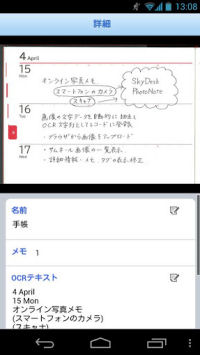 13:08
詳細
4 April
15
Mon
オンライン写真メモ
スマートフォンのカメラ
スキャナ
SkyDesk
PhotoNote
16
Tue
画像の文字データを自動的に抽出し
OCR文字列としてレコードに登録
・ブラウザから画像をアップロード
17
Wed
・サムネール画像の一覧表示
・詳細情報・メモ、タグの表示、修正
名前
手帳
メモ 1
OCRテキスト
4 April
15 Mon
オンライン写真メモ
(スマートフォンのカメラ)
(スキャナ)